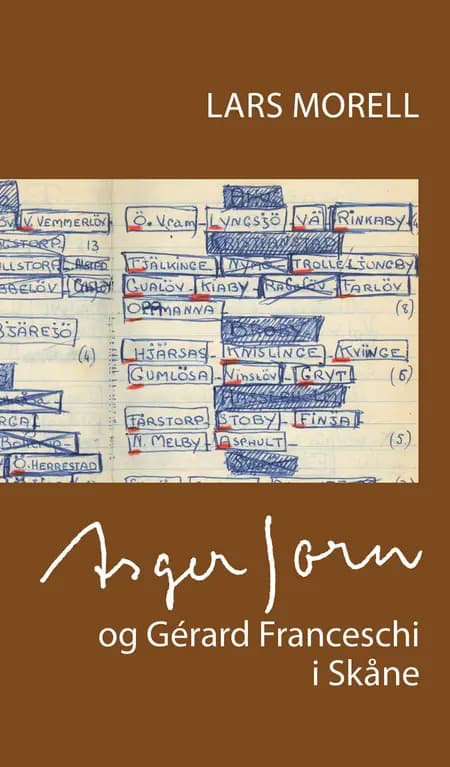 LARS MORELL
V. VEMMERLÖV Ö. Vram LYNGSJÖ VÄ RINKABY
13
FJÄLKINGE TROLLE LJUNGBY
GUALÖV KIABY FARLÖV
OPPMANNA (8)
BJÄRESJÖ
(4) HJÄRSAS KNISLINGE KVIINGE
GUMLÖSA Vinslöv GRYT (6)
FÄRSTORP STOBY FINJA
N. MELBY ASPHULT (5)
Ö. HERRESTAD
Asger Jorn
og Gérard Franceschi
i Skåne